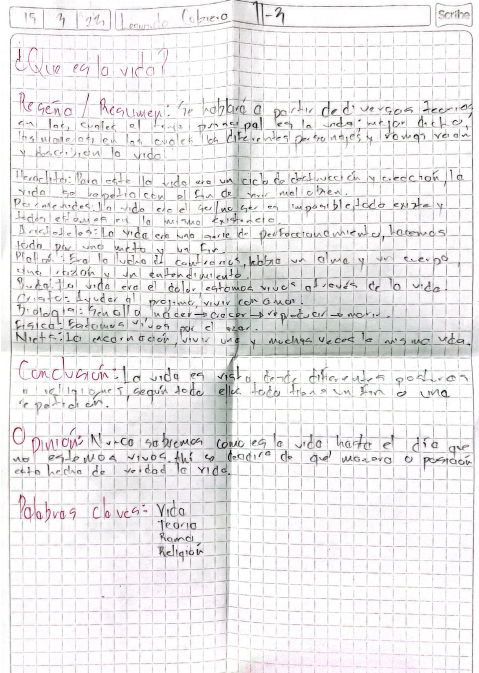 15 3 23 Leonardo Cabrera 11-3 Scribe
¿Que es la vida?
Reseña / Resumen: Se hablará a partir de diversas teorias
en las cuales el tema principal es la vida; mejor dicho,
las maneras en las cuales los diferentes personajes y ramas veian
y describian la vida.
Heraclito: Para este la vida era un ciclo de destrucción y creación, la
vida se repetia con el fin de vivir mal o bien.
Parmenides: La vida era el ser/no ser es imposible, todo existe y
todos estamos en la misma existencia.
Aristoteles: La vida era una serie de perfeccionamiento, hacemos
todo por una meta y un fin.
Platon: Era la lucha de contrarios, habia un alma y un cuerpo,
una razón y un entendimiento.
Buda: La vida era el dolor estamos vivos a través de la vida.
Cristo: Ayudar al projimo, vivir con amor.
Biologia: Sencillo nacer → crecer → reproducir → morir.
Fisica: Estamos vivos por el azar.
Niets: La encarnación, vivir una y muchas veces la misma vida.
Conclusión: La vida es vista desde diferentes posturas
o religiones, según todo ella todo tiene un fin o una
repetición.
Opinión: Nunca sabremos como es la vida hasta el día que
no estemos vivos, ahi se decidira de qué manera o posición
esta hecha de verdad la vida.
Palabras claves: Vida
Teoria
Rama
Religión